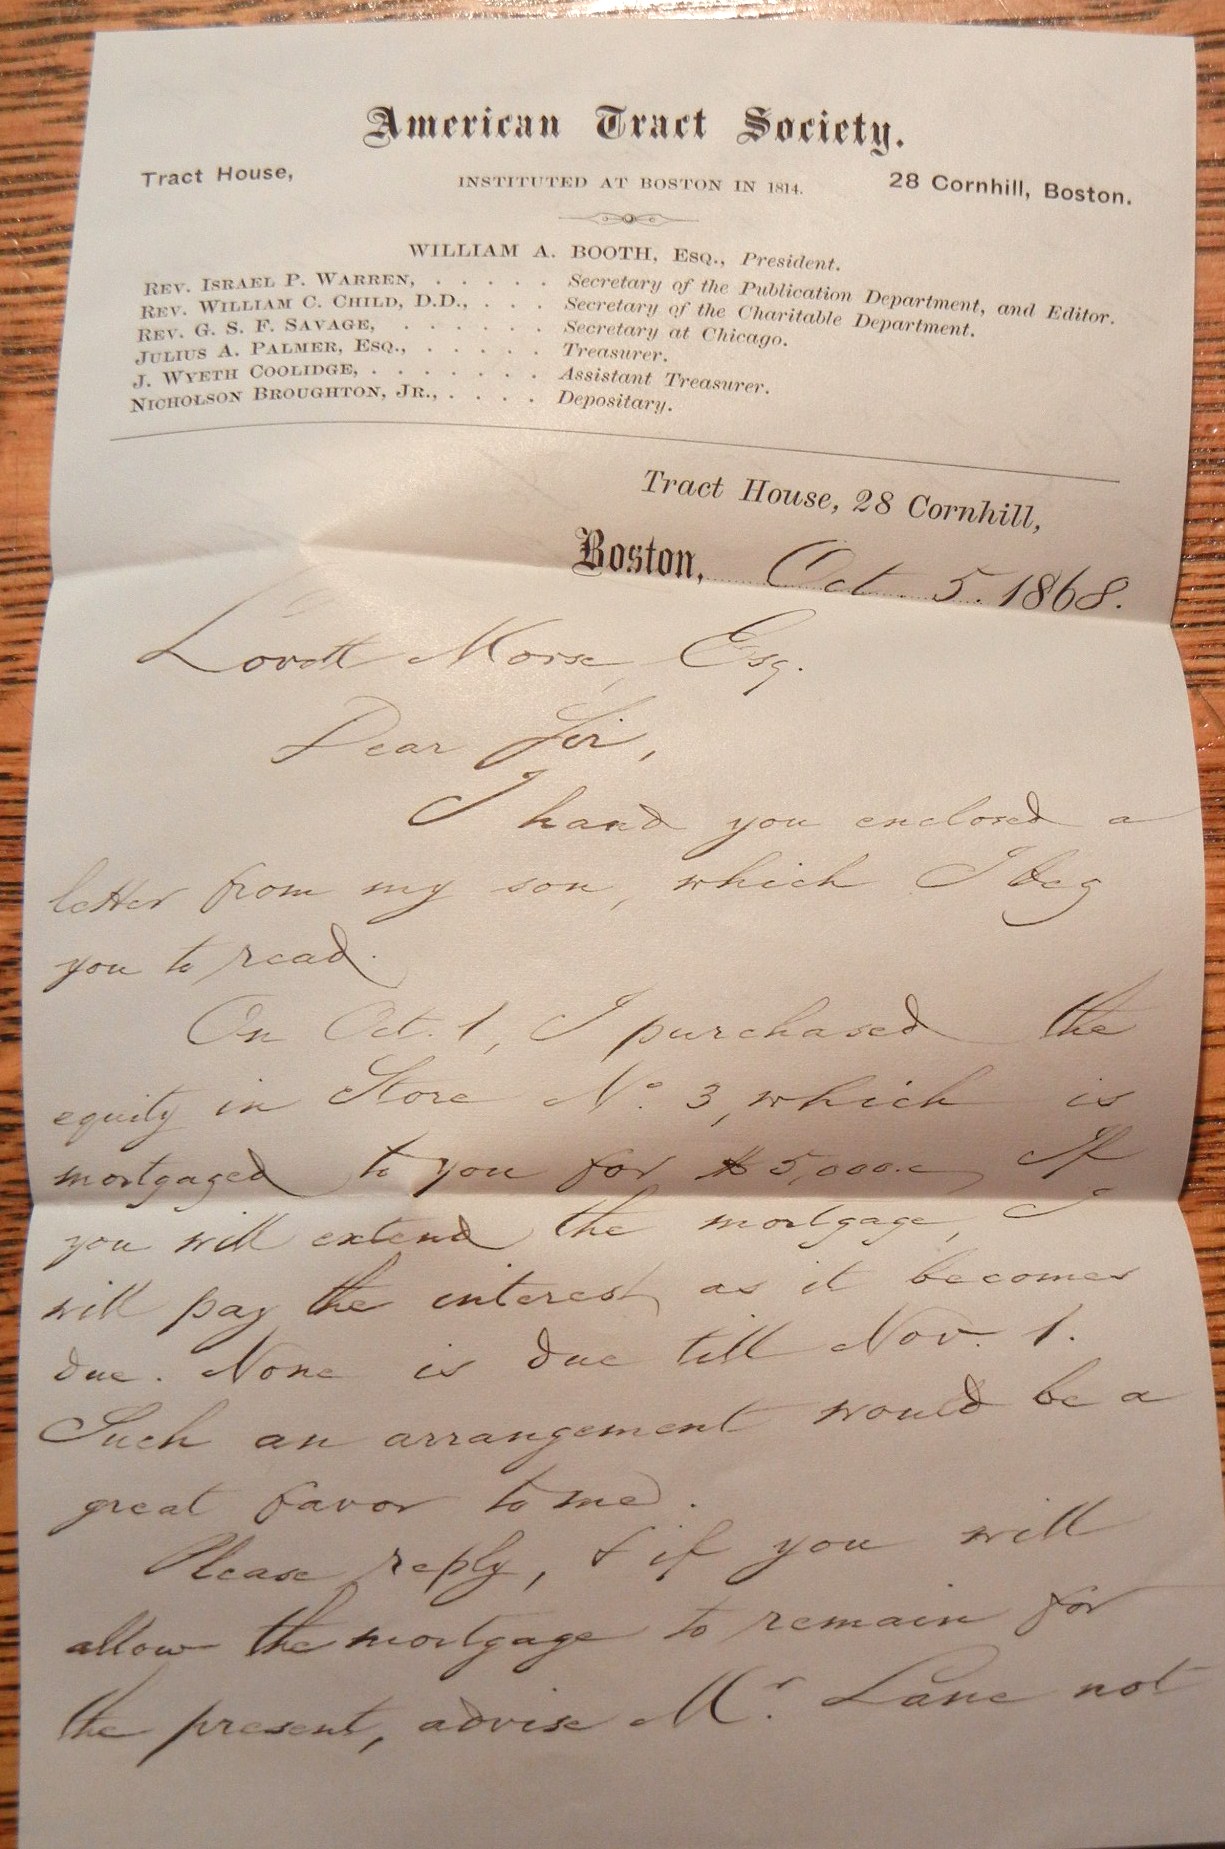 American Tract Society.
Tract House, INSTITUTED AT BOSTON IN 1814. 28 Cornhill, Boston.
WILLIAM A. BOOTH, ESQ., President.
REV. ISRAEL P. WARREN, . . . . . Secretary of the Publication Department, and Editor.
REV. WILLIAM C. CHILD, D.D., . . . Secretary of the Charitable Department.
REV. G. S. F. SAVAGE, . . . . . . Secretary at Chicago.
JULIUS A. PALMER, ESQ., . . . . . Treasurer.
J. WYETH COOLIDGE, . . . . . . . Assistant Treasurer.
NICHOLSON BROUGHTON, JR., . . . . Depositary.
Tract House, 28 Cornhill,
Boston, Oct. 5. 1868.
Lovett Morse, Esq.
Dear Sir,
I hand you enclosed a
letter from my son, which I beg
you to read.
On Oct. 1, I purchased the
equity in Store No. 3, which is
mortgaged to you for $5,000. If
you will extend the mortgage, I
will pay the interest as it becomes
due. None is due till Nov. 1.
Such an arrangement would be a
great favor to me.
Please reply, & if you will
allow the mortgage to remain for
the present, advise Mr. Lane not